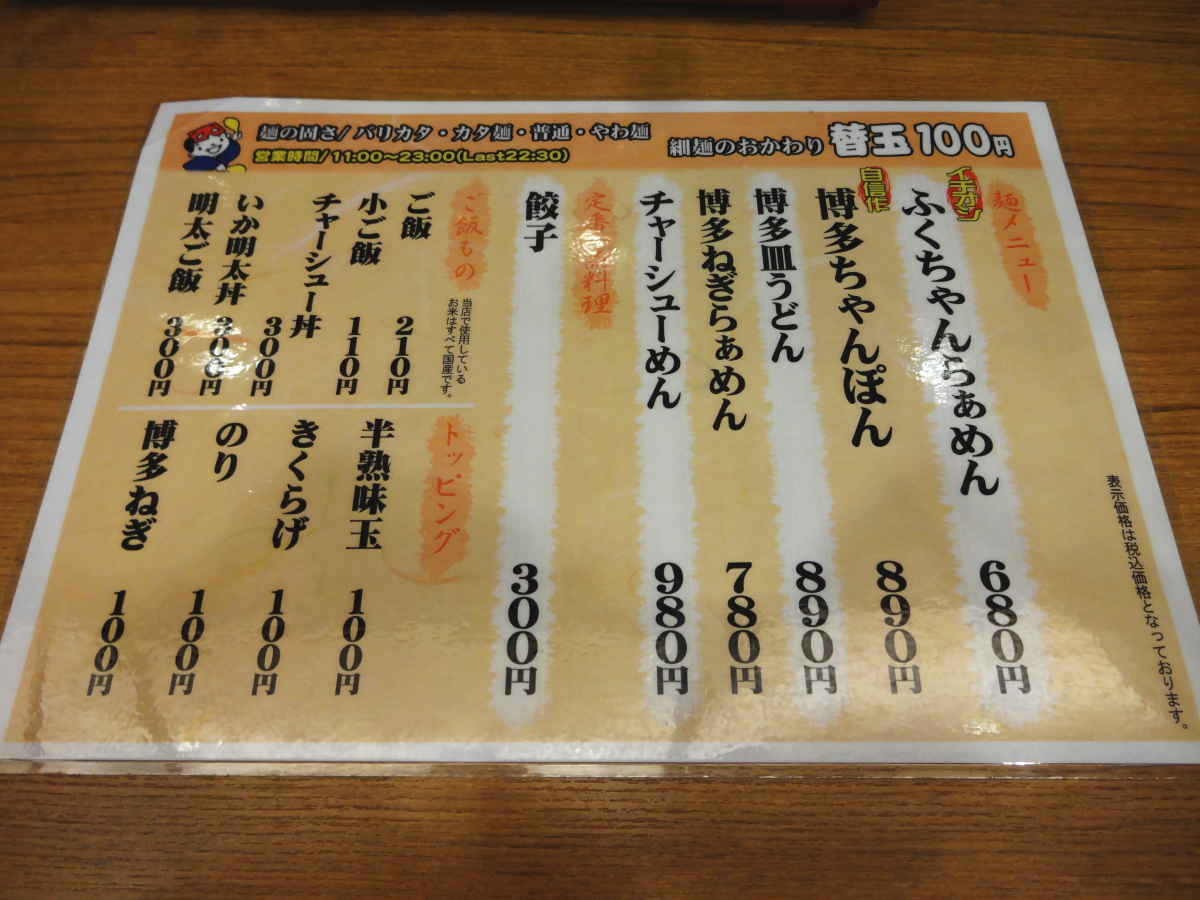 麺の固さ/バリカタ・カタ麺・普通・やわ麺
営業時間/11:00～23:00(Last22:30)
細麺のおかわり 替玉100円
麺メニュー
イチオシ
ふくちゃんらぁめん 680円
自信作
博多ちゃんぽん 890円
博多皿うどん 890円
博多ねぎらぁめん 780円
チャーシューめん 980円
定番 料理
餃子 300円
ご飯もの
当店で使用している
お米はすべて国産です。
ご飯 210円
小ご飯 110円
チャーシュー丼 300円
いか明太丼 300円
明太ご飯 300円
トッピング
半熟味玉 100円
きくらげ 100円
のり 100円
博多ねぎ 100円
表示価格は税込価格となっております。